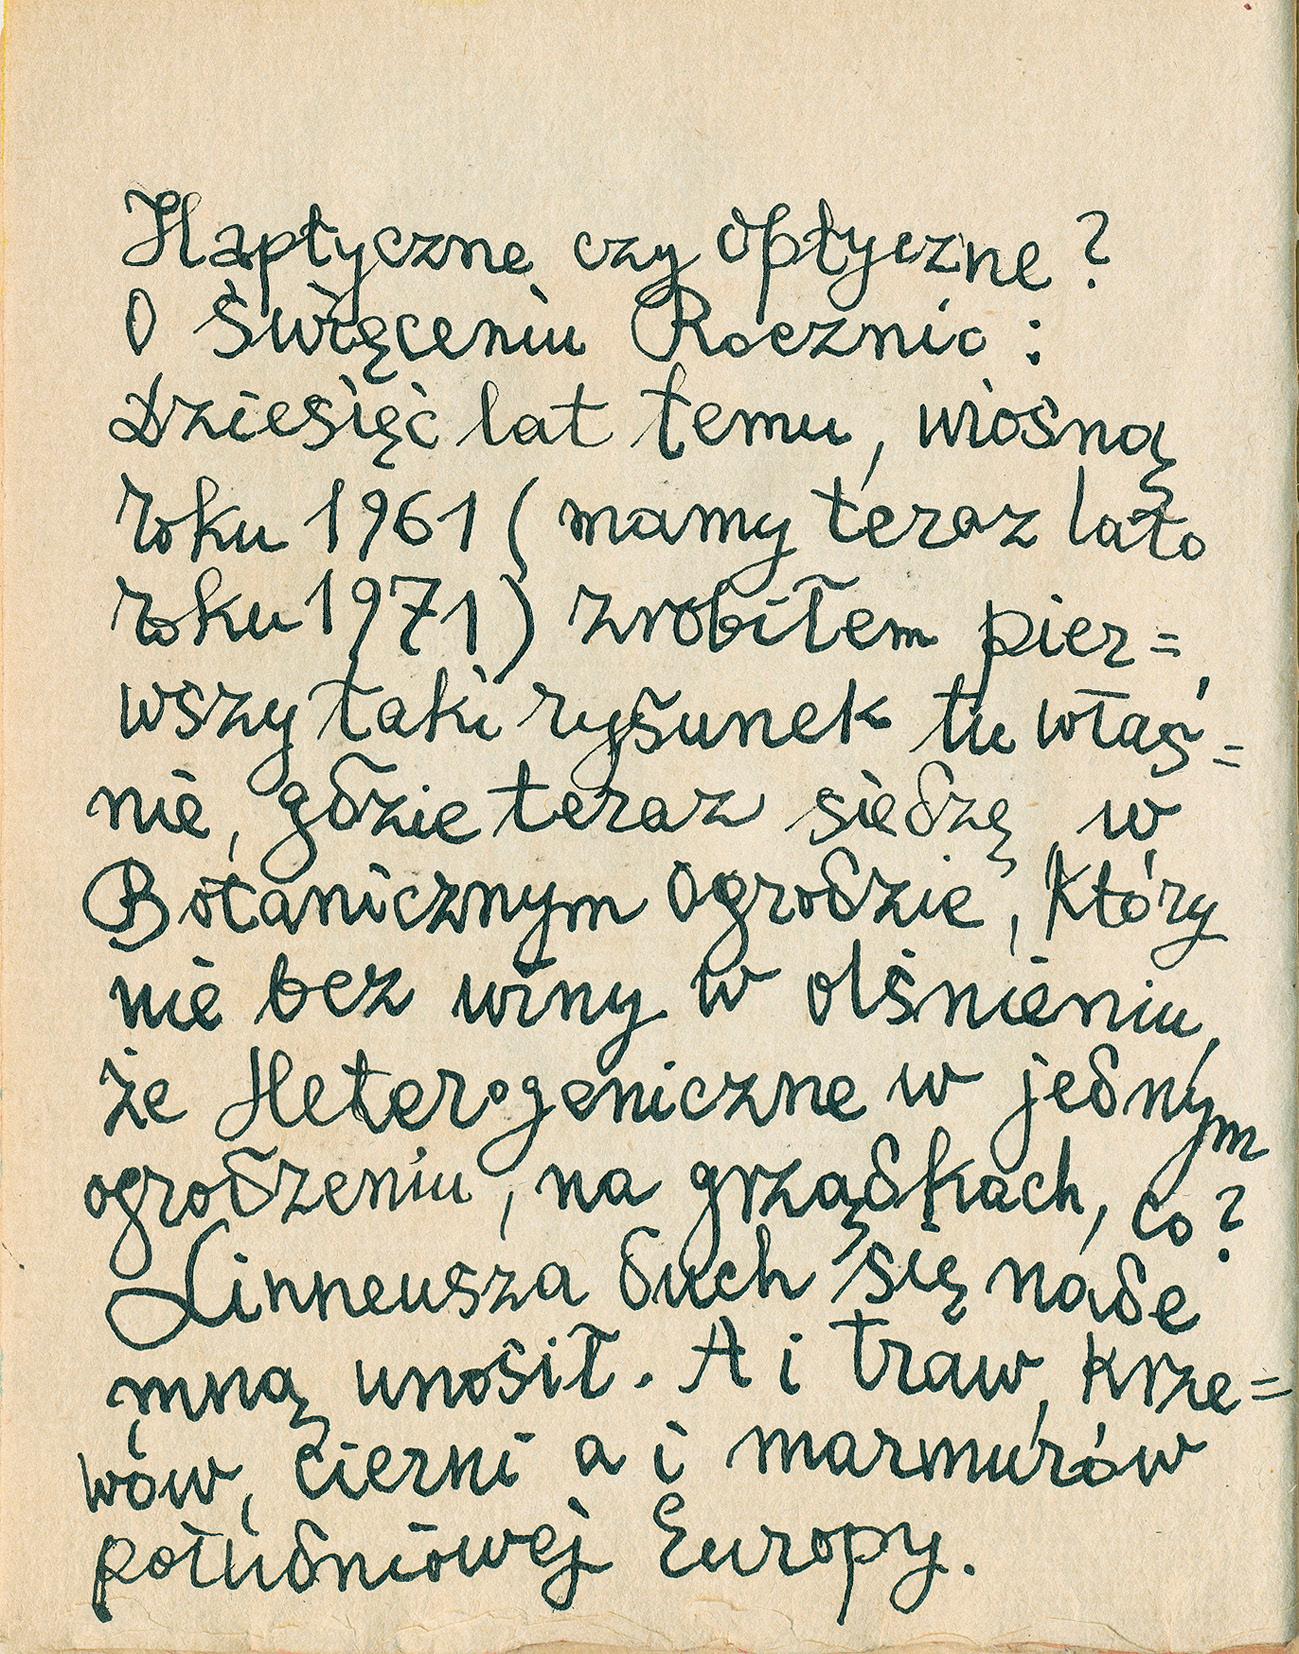 Haptyczne czy Optyczne?
O Święceniu Rocznic:
Dziesięć lat temu, wiosną
roku 1961 (mamy teraz lato
roku 1971) zrobiłem pier=
wszy taki rysunek tu właś=
nie, gdzie teraz siedzę, w
Botanicznym Ogrodzie, który
nie bez winy w olśnieniu,
że Heterogeniczne w jednym
ogrodzeniu, na grządkach, co?
Linneusza duch się nade
mną unosił. A i traw, krze=
wów, cierni a i marmurów
południowej Europy.